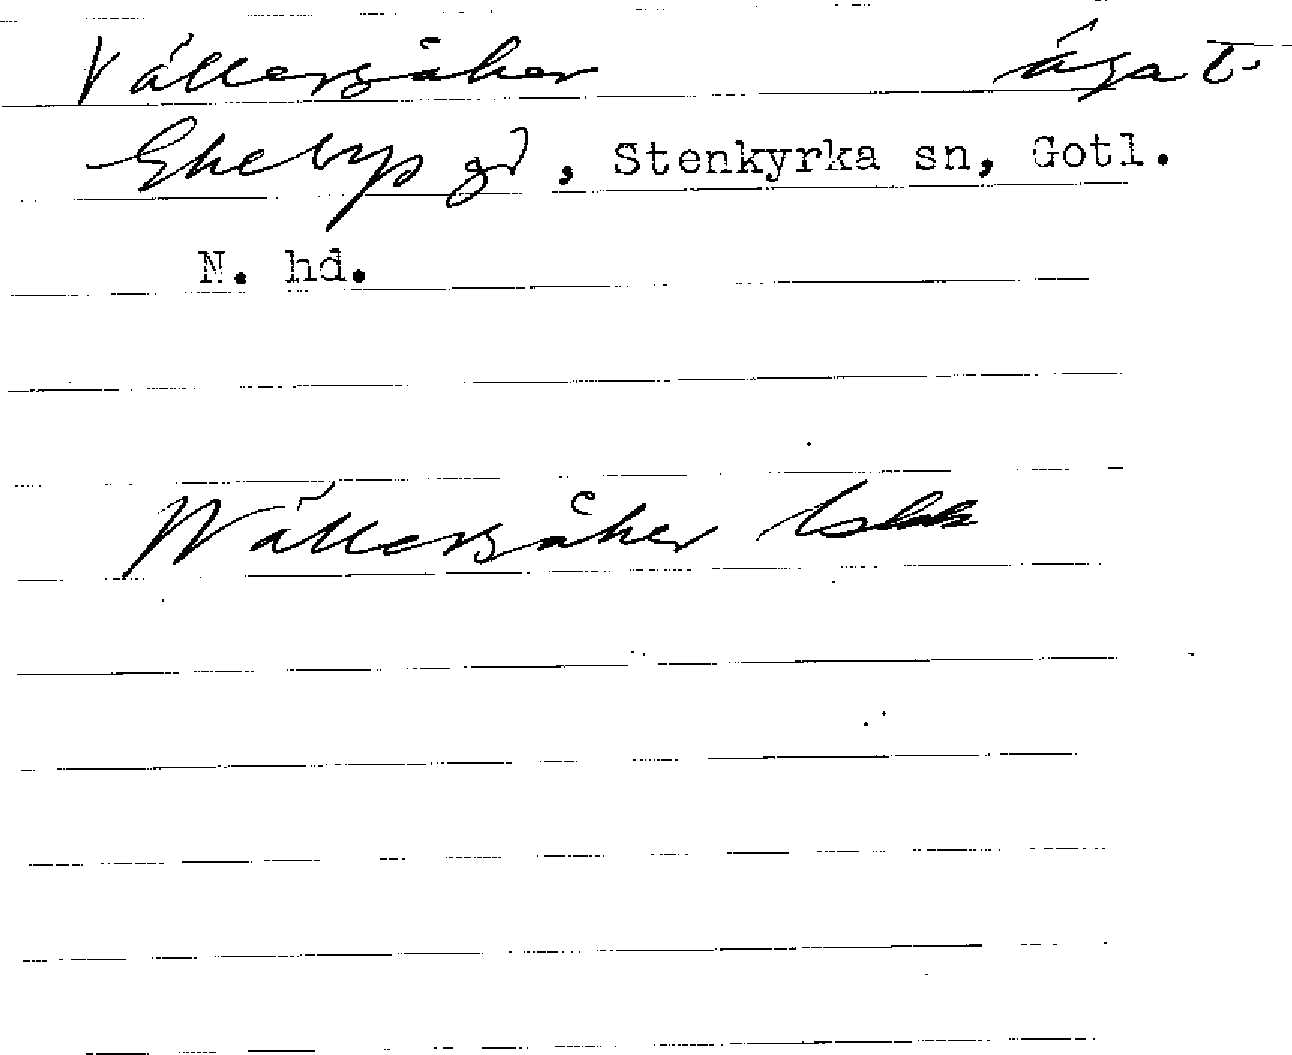 Vällersåker äga t.
Ekebys gd, Stenkyrka sn, Gotl.
N. hd.
Wällersåker